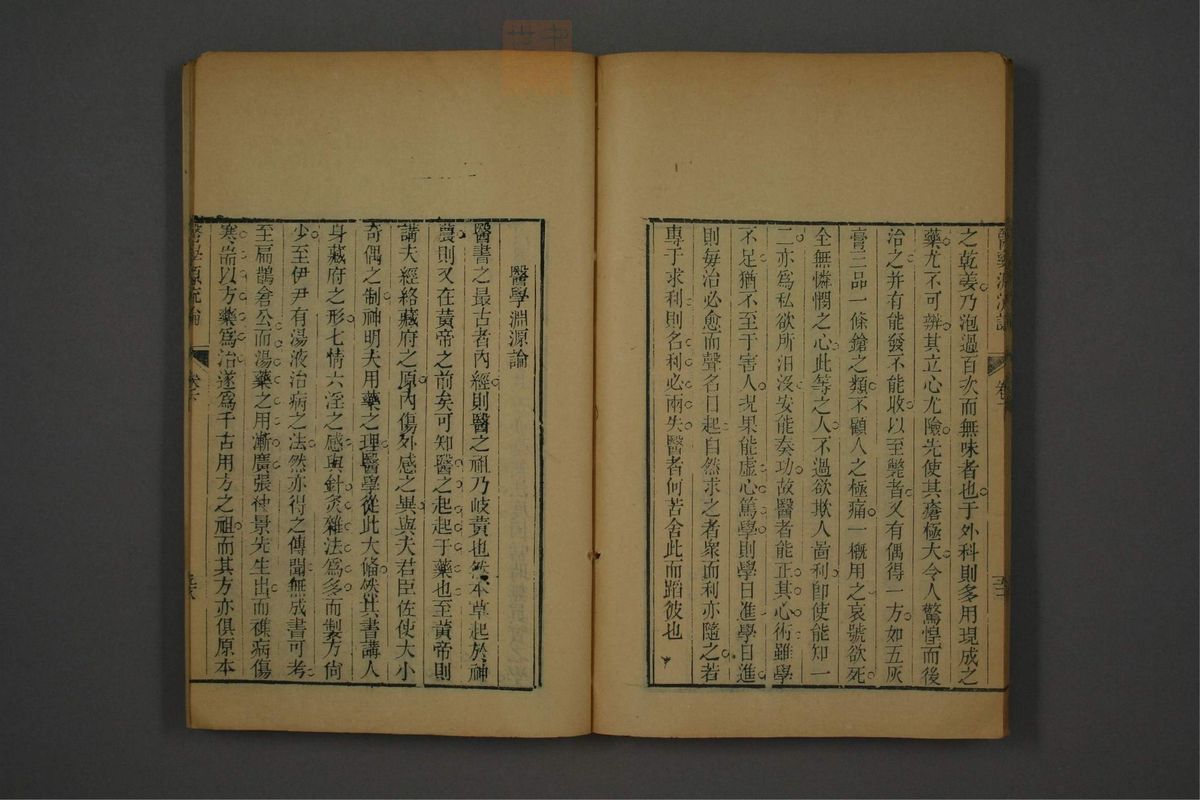 之乾姜乃泡過百次而無味者也于外科則多用現成之
藥尤不可辨其立心尤險先使其瘡極大令人驚惶而後
治之并有能發不能收以至斃者又有偶得一方如五灰
膏三品一條鎗之類不顧人之極痛一概用之哀號欲死
全無憐憫之心此等之人不過欲欺人圖利即使能知一
二亦為私欲所汨沒安能奏功故醫者能正其心術雖學
不足猶不至于害人况果能虛心篤學則學日進學日進
則每治必愈而聲名日起自然求之者衆而利亦隨之若
專于求利則名利必兩失醫者何苦舍此而蹈彼也
醫學淵源論
醫書之最古者內經則醫之祖乃岐黃也然本草起於神
農則又在黃帝之前矣可知醫之起起于藥也至黃帝則
講夫經絡藏府之原內傷外感之異與夫君臣佐使大小
奇偶之制神明夫用藥之理醫學從此大備然其書講人
身藏府之形七情六淫之感與針灸雜法為多而製方尚
少至伊尹有湯液治病之法然亦得之傳聞無成書可考
至扁鵲倉公而湯藥之用漸廣張仲景先生出而雜病傷
寒耑以方藥為治遂為千古用方之祖而其方亦俱原本
醫學源流論